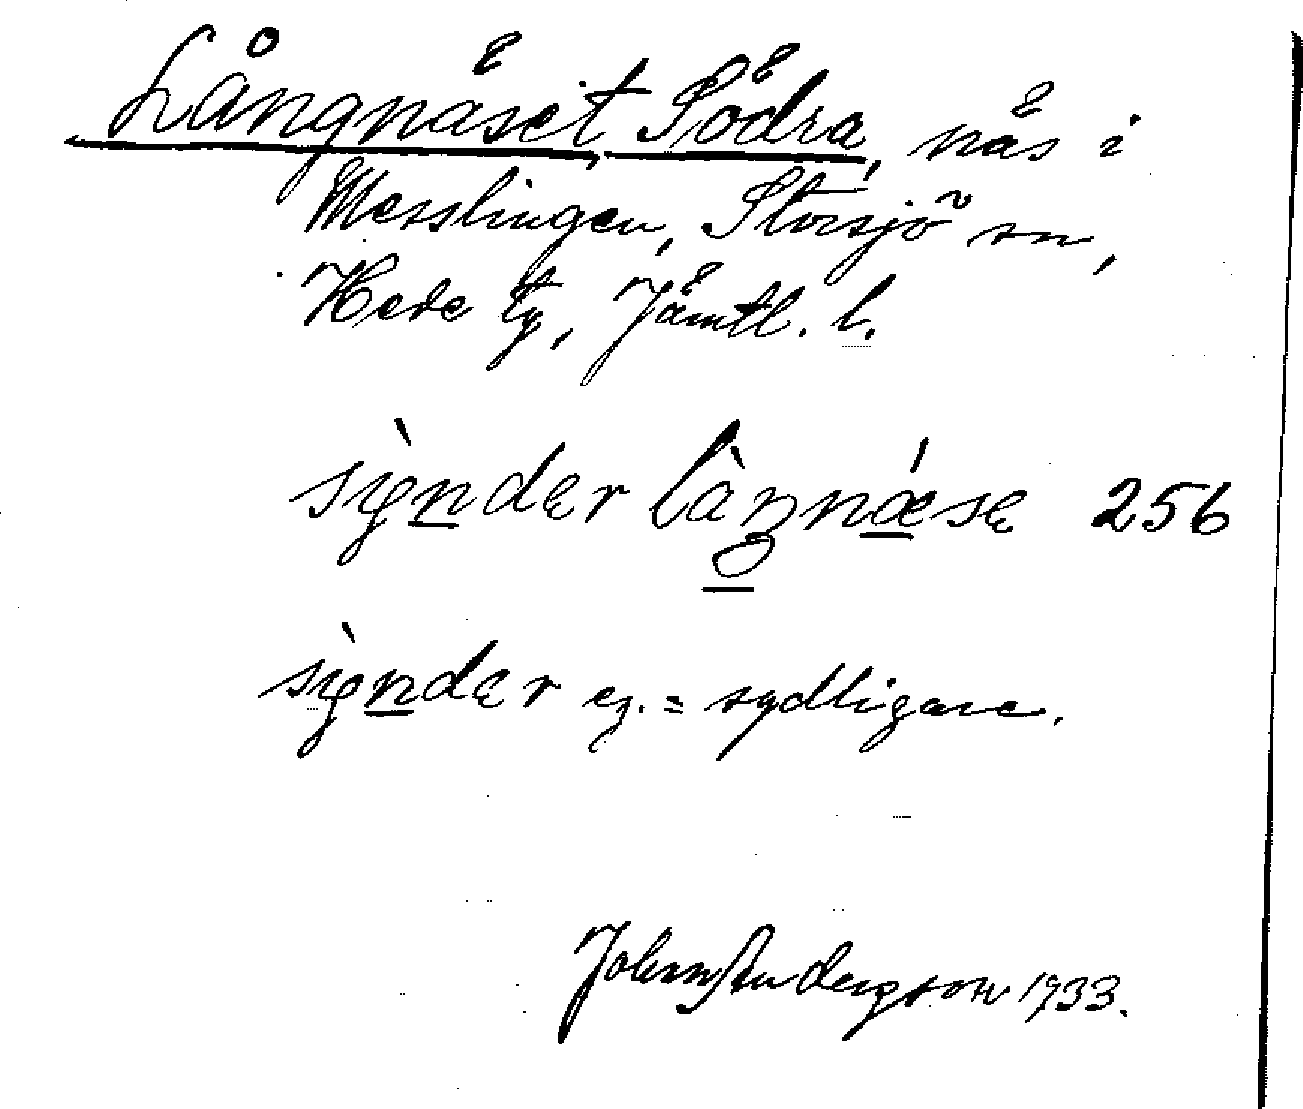 Långnäset, Södra, näs i
Messlingen, Storsjö sn,
Hede tg, Jämtl. l.
sỳnder là̀ŋnǽse 256
sỳnder eg. = sydligare.
1933.